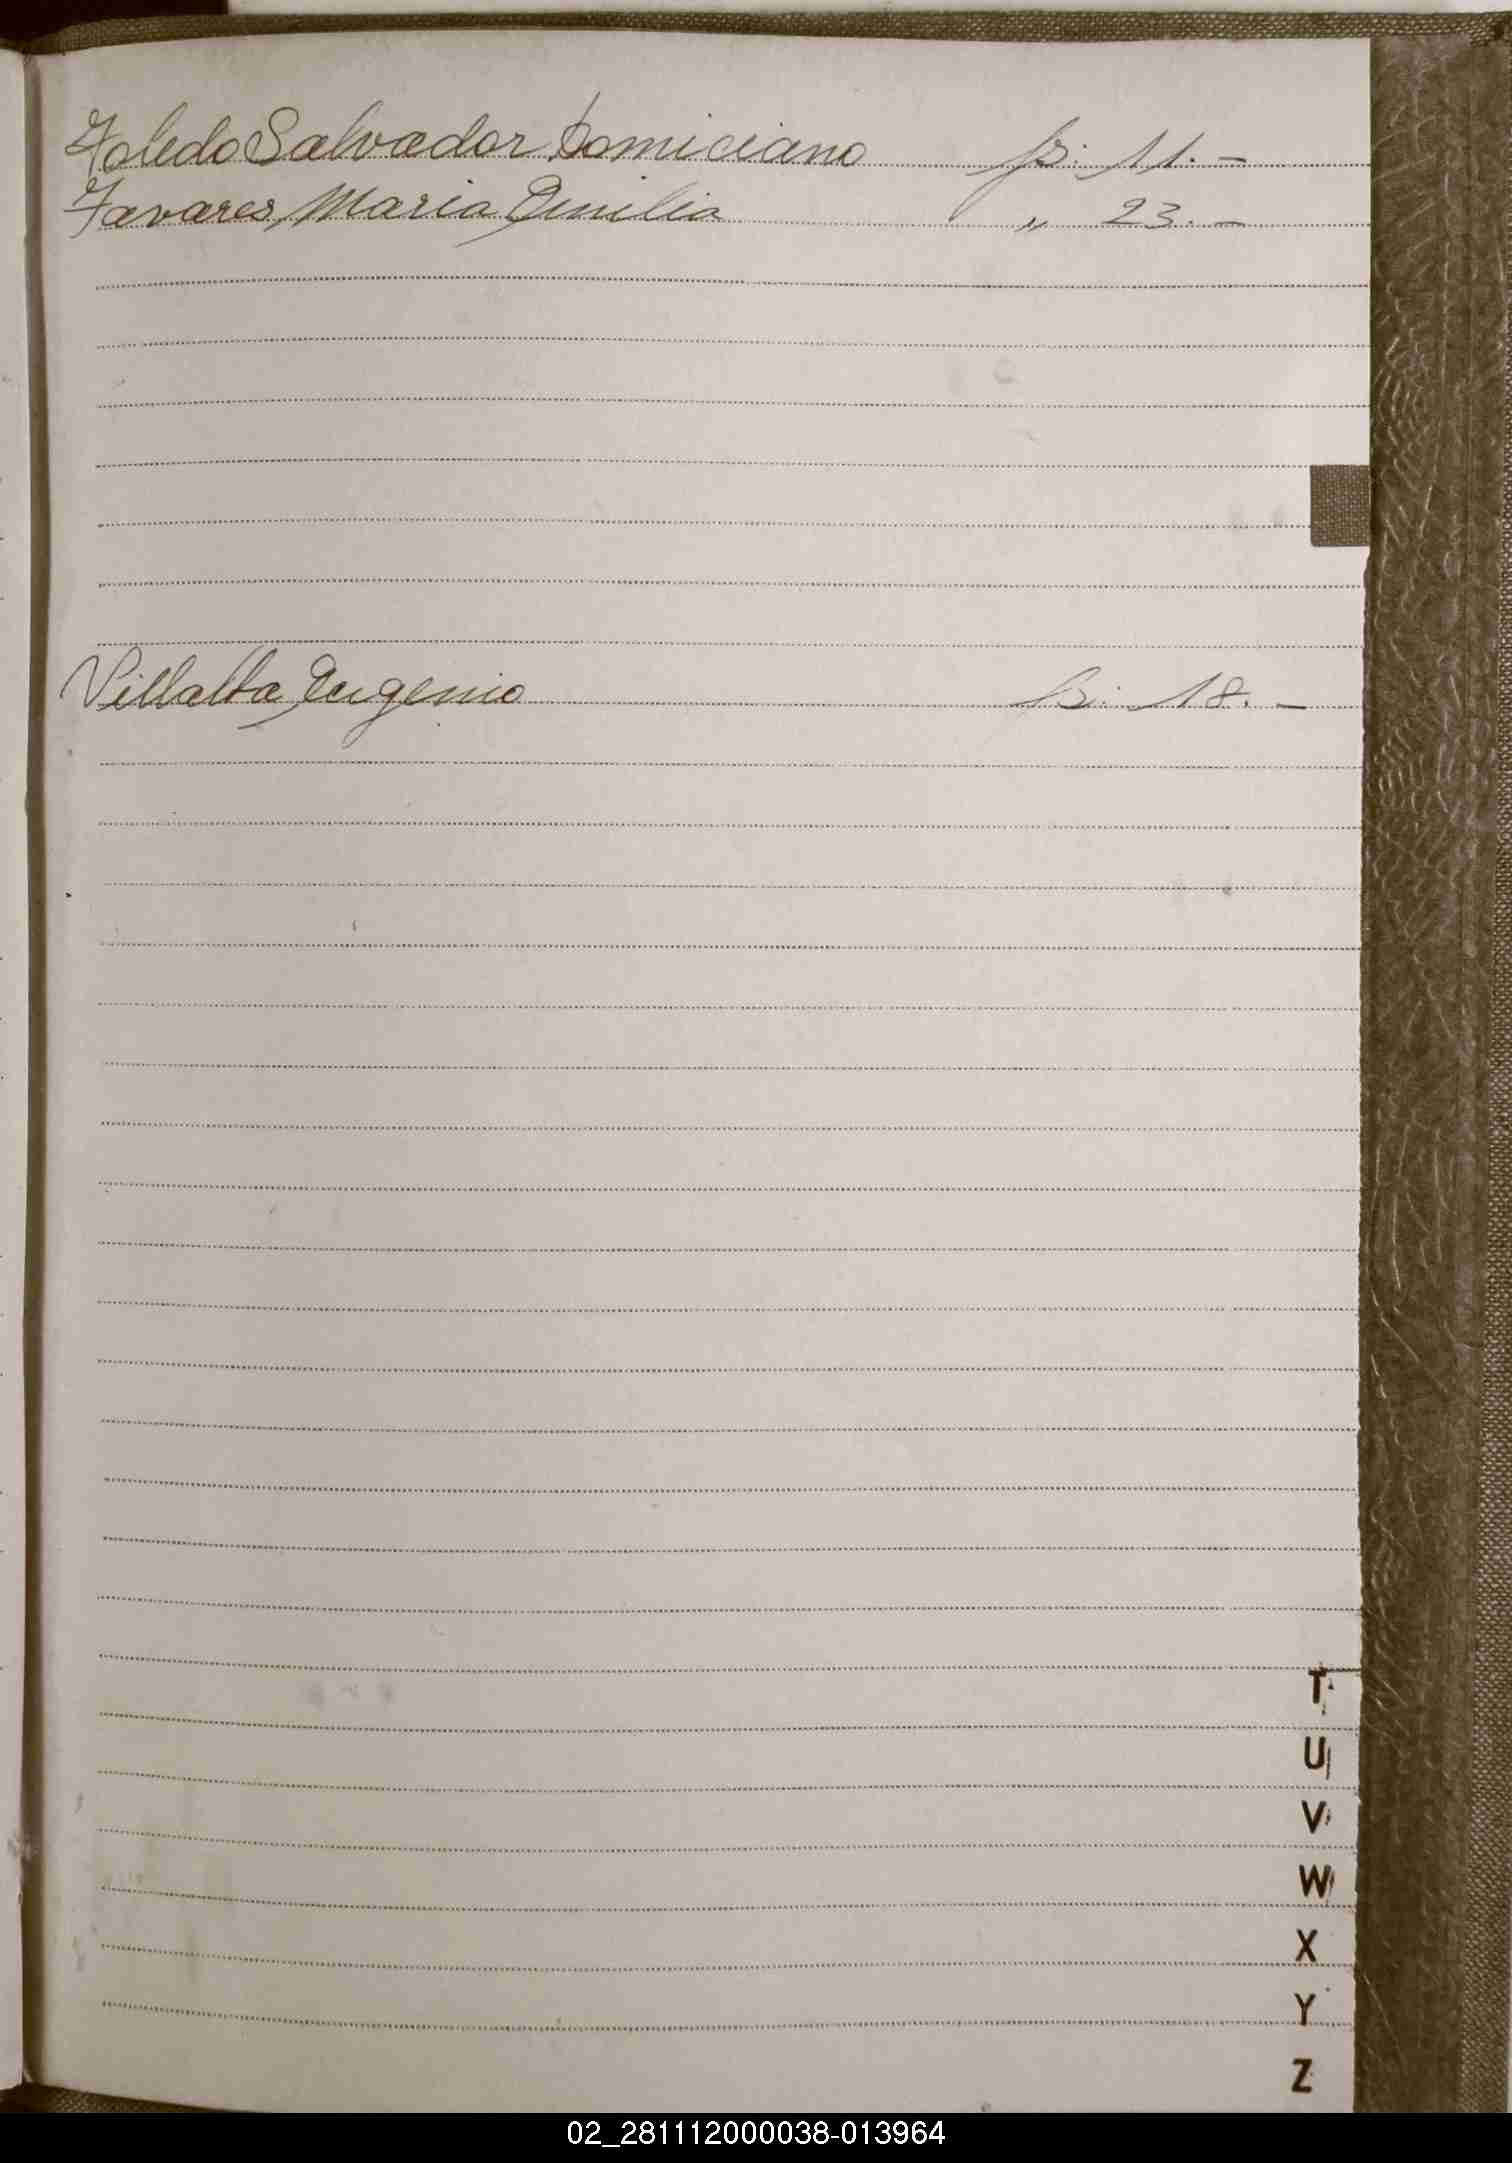 Toledo Salvador Domiciano fs: 11. –
Tavares, Maria Emilia " 23. –
Villalta, Eugenio fs: 18. –
T
U
V
W
X
Y
Z
02_281112000038-013964